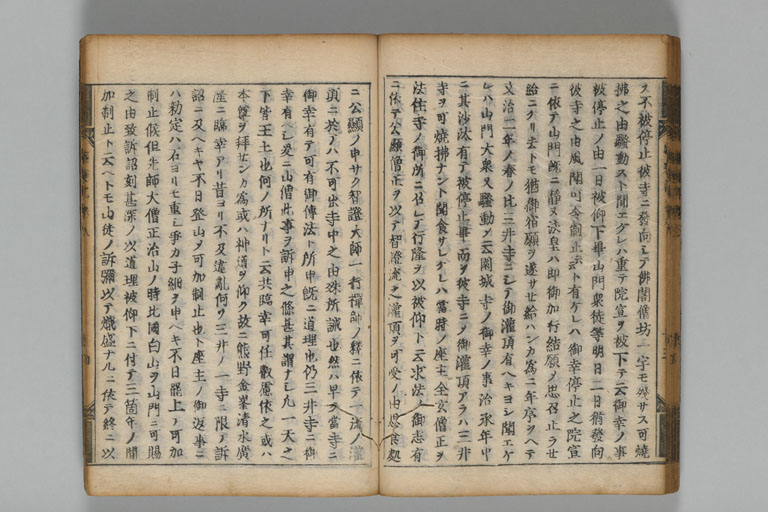 ヲ不被停止彼寺ニ發向シテ佛閣僧坊一字モ殘サス可燒
拂之由騷動スト聞エケレハ重テ院宣ヲ被下テ云御幸ノ事
被停止ノ由一日被仰下畢山門衆徒等明日二日猶發向
彼寺之由風聞可令制止云ト有ケレハ御幸停止之院宣
ニ依テ山門既ニ靜ヌ法皇ハ即御加行結願ノ思召止ラセ
給ニケリ去トモ猶御宿願ヲ遂サセ給ハンカ爲ニ年序ヲヘテ
文治二年ノ春ノ比三井寺ニシテ御灌頂有ヘキヨシ聞エケ
レハ山門大衆又騷動シ云園城寺ノ御幸ノ事治承年中
ニ其沙汰有テ被停止畢而ヲ彼寺ニノ御灌頂アラハ三井
寺ヲ可燒拂ナント聞食サレケレハ當時ノ座主全玄僧正ヲ
法住寺ノ御所ニ召レテ行隆ヲ以被仰下云求法ノ御志有
ニ依テ公顯僧正ヲ以テ智證流之灌頂ヲ可受ノ由思食処
ニ公顯ノ申サク智證大師一行禪師ノ釋ニ依テ一流ノ灌
頂ニ於テハ不可出寺中之由殊所誡也然ハ早ヲ當寺ニ
御幸有テ可有御傳法ト所申既ニ道理也仍三井寺ニ御
幸有ヘシ爰ニ山僧此事ヲ訴申之條甚其謂ナシ凡一天之
下皆王土也何ノ所ナリト云共臨幸可任叡慮依之或ハ
本尊ヲ拜センカ爲或ハ神道ヲ仰ク故ニ熊野金峯清水廣
隆ニ臨幸アリ昔ヨリ不及違亂何ソ三井ノ一寺ニ限テ訴
詔ニ及ヘキヤ不日登山ヲ可加制止也ト座主ノ御返事ニ
ハ勅定ハ石ヨリモ重シ爭カ子細ヲ申ヘキ不日罷上テ可加
制止候但朱師大僧正治山ノ時比國白山ヲ山門ニ可賜
之由致訴詔刻甚深ノ以道理被仰下ニ付テ三箇年ノ間
加制止ト云ヘトモ山徒ノ訴彌以テ熾盛ナルニ依テ終ニ以